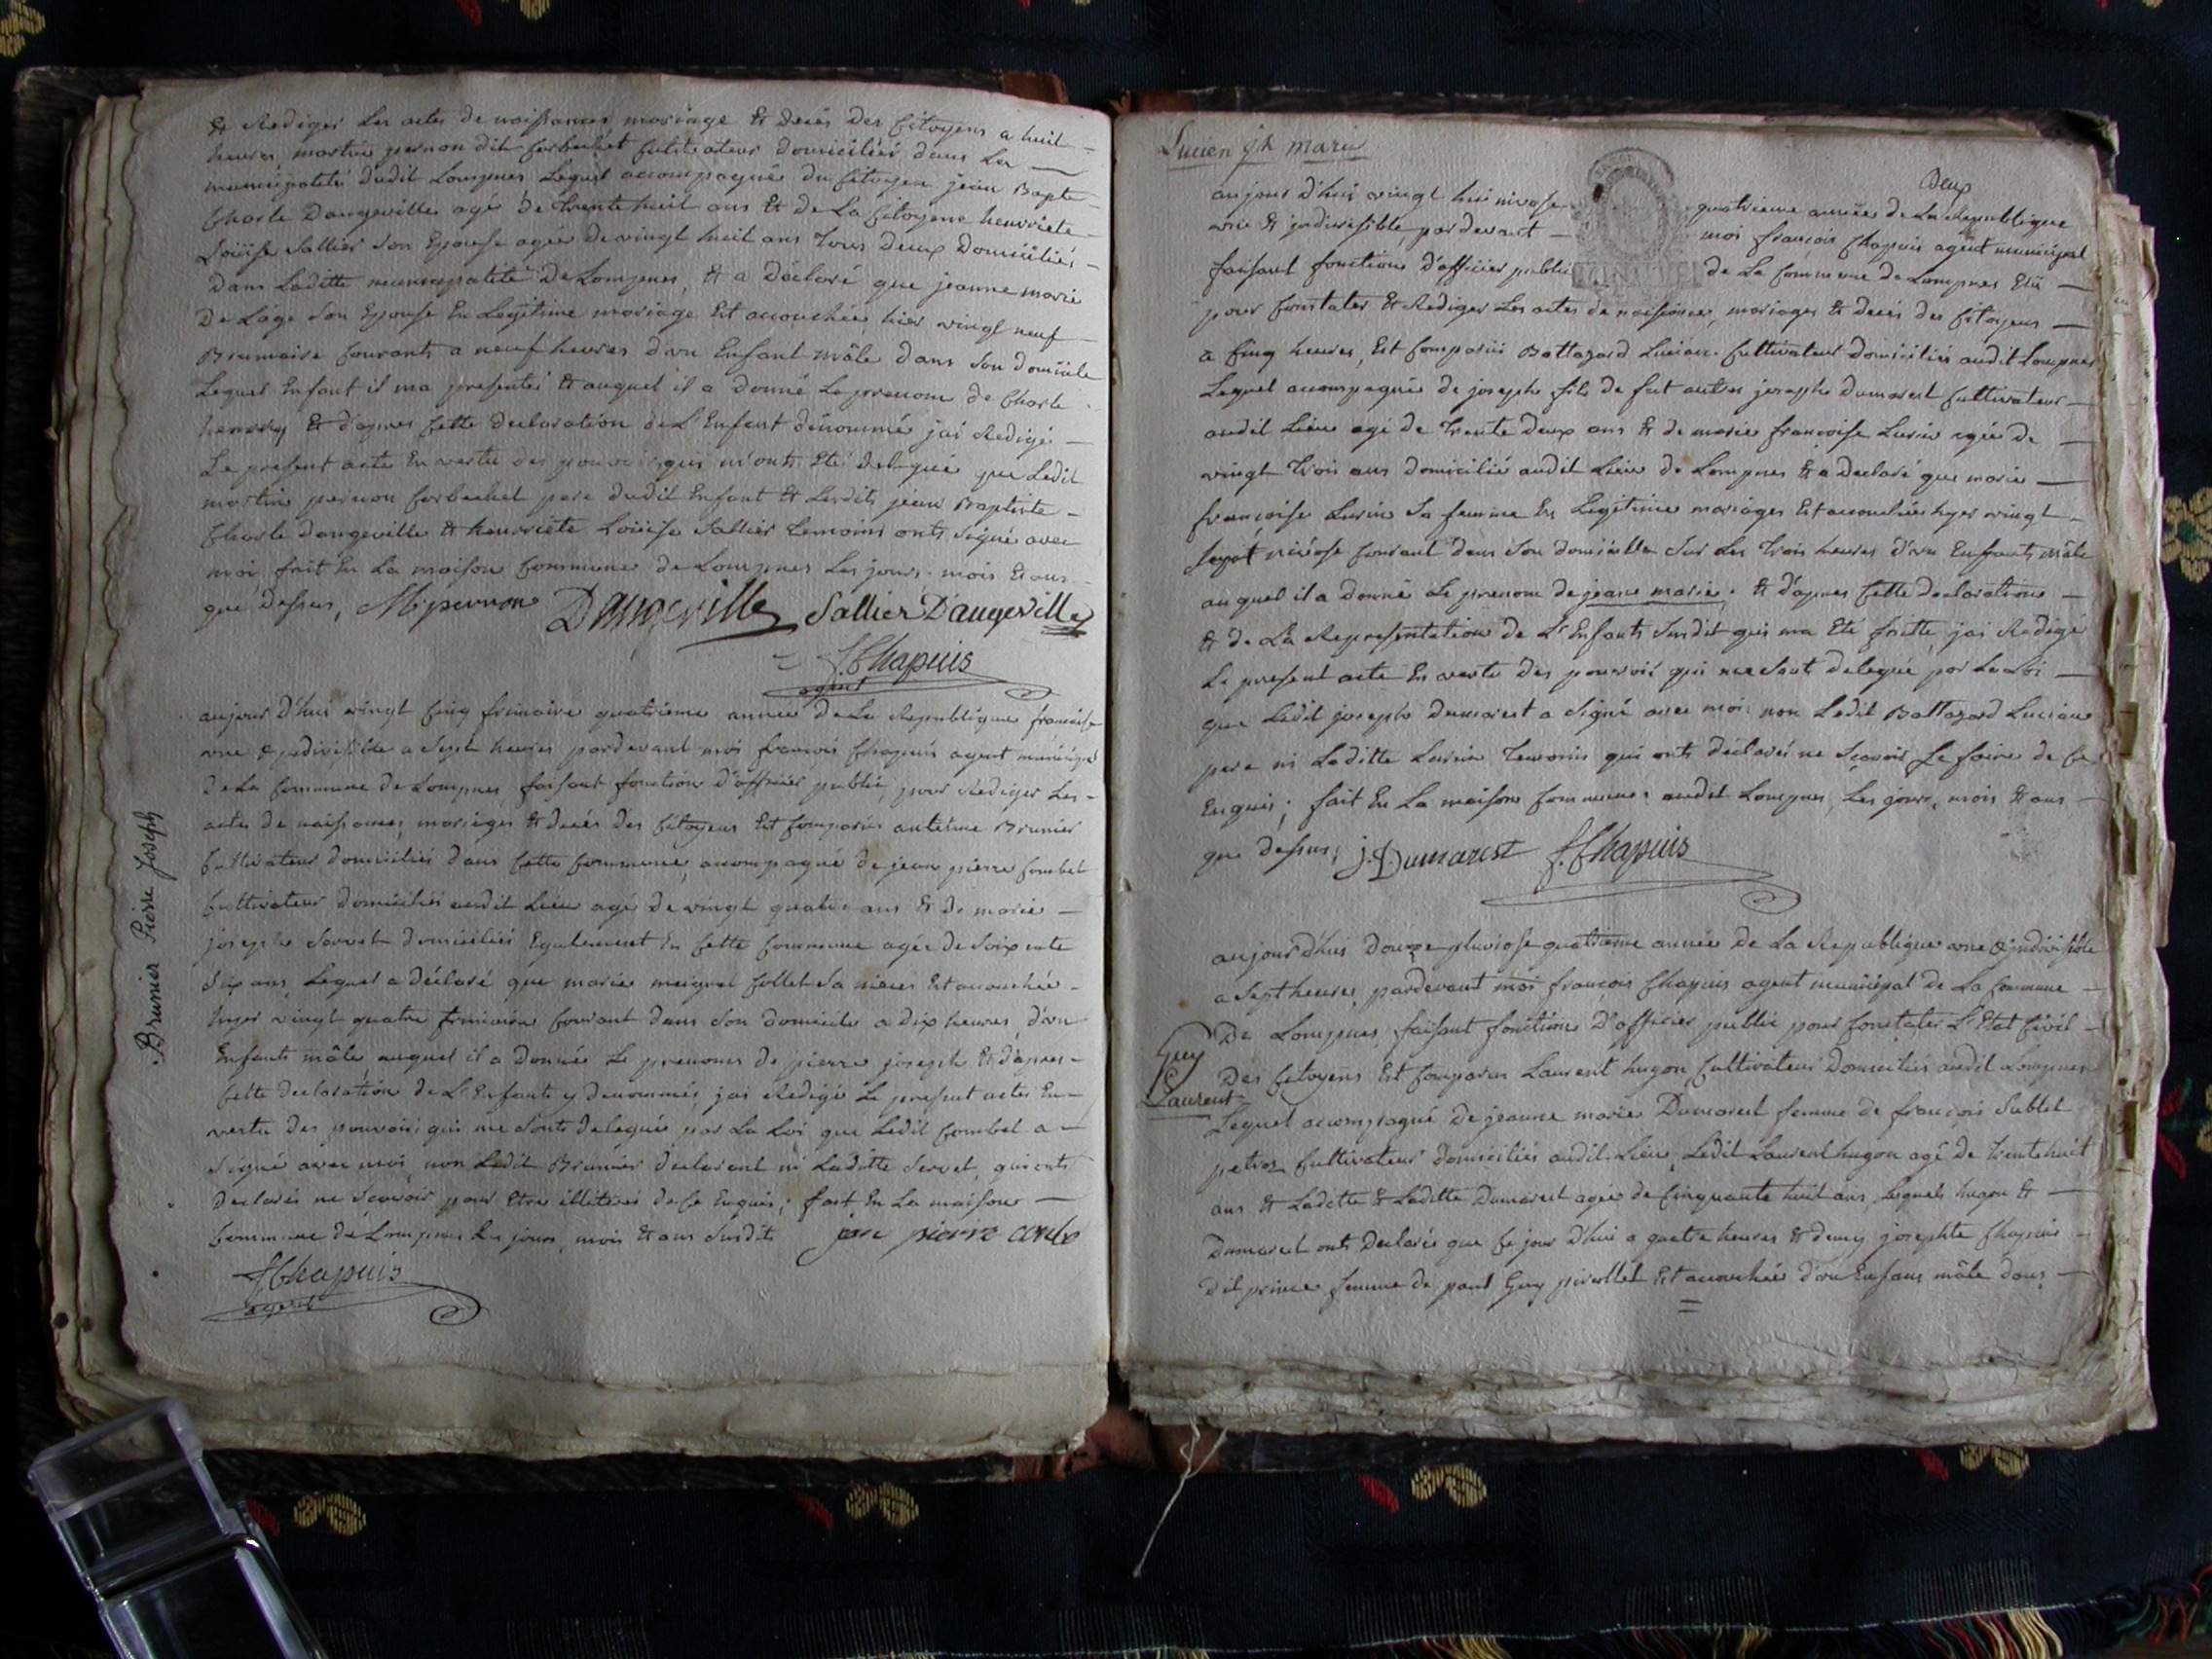 & Rediger Les actes de naissances mariage & decés des Citoyens a huit
heures, martin pernon dit Corbachet Cultivateur domiciliéé dans La
municipalité dudit Lompnes Lequel accompagné du Citoyen jean Bapte
Charle Dangeville agé de trente huit ans & de La Citoyene henriete
Loüise Sallier Son Epouse agée de vingt huit ans Tous deux Domiciliés
Dans Laditte municipalité De Lompnes, & a déclaré que jeanne marie
De Lage Son Epouse En Legitime mariage Est accouchée, hier vingt neuf
Brumaire Courants a neuf heures d'un Enfant mâle dans Son domicile
Lequel Enfant il ma presenté & auquel il a donné Le prenom de Charle
henry & d'apres Cette declaration de L'Enfant dénommé jai Redigé
Le present acte En vertu des pouvoirs qui m'onts Eté delegué que Ledit
martin pernon Corbachet pere dudit Enfant & Lesdits jean Baptiste
Charle dangeville & henriete Loüise Sallier temoins onts Signé avec
moi fait En La maison Commune de Lompnes Les jours mois & ans
que dessus, M pernon Dangeville Sallier D'angeville
f. Chapuis
agent
aujour d'hui vingt Cinq frimaire quatrieme année de La Republique francaise
une & jndivisible a Sept heures pardevant moi francois Chapuis agent municipal
de La Commune de Lompnes, faisant fonction d'officier public, pour Rediger Les
actes de naissances, mariages & decés des Citoyens Est Comparus antelme Brunier
Cultivateur domiciliéé dans Cette Commune, accompagné de jean pierre Combet
Cultivateur domicilié audit Lieu agé de vingt quatre ans & de marie
josephe Servet domiciliéé Egalement En Cette Commune agée de Soixante
dix ans, Lequel a déclaré que marie Collet Sa Est accouchée
hyer vingt quatre frimaire Courant dans Son domicile a dix heures, d'un
Enfants mâle, auquel il a donnée Le prenoms de pierre joseph & d'apres
Cette declaration de L'Enfants y denommés, jai Redigé Le present actes En
vertu des pouvoirs qui me Sonts delegués par La Loi que Ledit Combet a
Signé avec moi, non Ledit Brunier declarant ni Laditte Servet, qui onts
declarés ne Scavoir pour Etre illiterés de Ce Enquis; fait En La maison
Commune de Lompnes Les jours, mois & ans Susdit jean pierre combe
f. Chapuis
agent
Brunier Pierre Joseph
Lucien jn marie
Deux
aujour d'hui vingt hui nivose quatrieme année de La Republique
une & jndivisible, pardevant moi francois Chapuis agent municipal
faisant fonction d'officier public de La Commune de Lompnes Elü
pour Constater & Rediger Les actes de naissances, mariages & decés des Citoyens
a Cinq heures, Est Comparü Baltazard Lucian Cultivateur domicilié audit Lompnes
Lequel accompagné de josephe fils de fut autre josephe Dumarest Cultivateur
audit Lieu agé de trente Deux ans & de marie francoise Lurin agée de
vingt trois ans domicilié audit Lieu de Lompnes & a Declaré que marie
francoise Lurin Sa femme En Legitime mariages Est accouchée hyer vingt
Sept nivôse Courant dans Son domicille Sur Les trois heures d'un Enfants mâle
auquel il a donné Le prenom de jean marie, & d'apres Cette declaration
& de La Representation de L'Enfants Susdit qui ma Eté faitte, jai Redigé
Le present acte En vertu des pouvoir qui me Sont delegué par La Loi
que Ledit josephe dumarest a Signé avec moi non Ledit Baltazard Lucian
pere ni Laditte Lurin temoins qui onts déclarés ne Scavoir Le faire de Ce
Enquis; fait En La maison Commune audit Lompnes, Les jours, mois & ans
que dessus; j. Dumarest f. Chapuis
aujour d'hui douze pluviose quattrieme année de La Republique une & jndivisible
a Sept heures, pardevant moi francois Chapuis agent municipal de La Commune
De Lompnes, faisant fonction D'officier public pour Constater L'Etat Civil
Guy
Laurent
Des Citoyens Est Comparus Laurent hugon Cultivateur Domiciliés audit Lompnes
Lequel accompagné de jeanne marie Dumarest femme de francois Sublet
Cultivateur Domiciliés audit Lieu, Ledit Laurent hugon agé de trente huit
ans & Laditte & Laditte Dumarest agée de Cinquante huit ans, Lequels hugon &
Dumarest onts Declarés que Ce jour d'hui a quatre heures & demy josephte Chapuis
dit prince femme de paul Guy Est accouchée d'un Enfans mâle dans